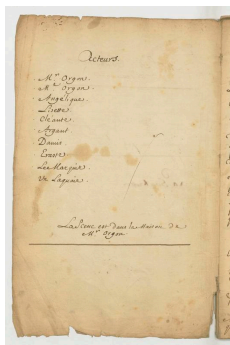 Acteurs.
Mr. Orgon.
Me. Orgon.
Angelique.
Lisette.
Cléante.
Argant.
Damis.
Eraste.
Le Marquis.
Un Laquais.
La Scene est dans la Maison de
Mr. Orgon